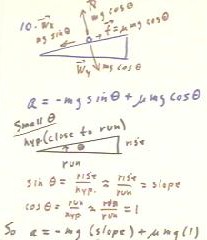 10. W⃗x N⃗ mg cosθ
mg sinθ + f⃗ = μ mg cosθ
W⃗y mg cosθ
a = -mg sinθ + μmg cosθ
Small θ
hyp. (close to run)
rise
θ
run
sin θ = rise/hyp. ≈ rise/run = slope
cosθ = run/hyp ≈ run/run = 1
So a = -mg (slope) + μmg(1)